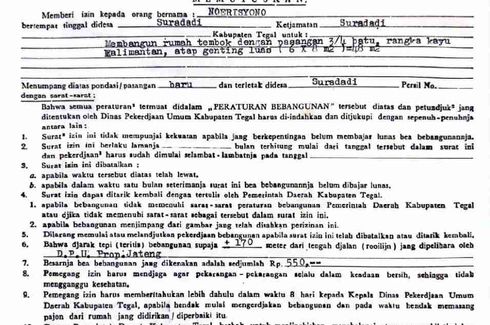 M E M U T U S K A N :
Memberi izin kepada orang bernama : NOERISYONO
bertempat tinggal didesa Suradadi Ketjamatan Suradadi
Kabupaten Tegal untuk :
Membangun rumah tembok dengan pasangan 3/4 batu, rangka kayu
Kalimantan, atap genting luas ( 6 X 8 m2 )=48 m2
Menumpang diatas pondasi/pasangan baru dan terletak didesa Suradadi Persil No.
dengan sarat-sarat :
Bahwa semua peraturan² termuat didalam „PERATURAN BEBANGUNAN" tersebut diatas dan petundjuk² jang
ditentukan oleh Dinas Pekerdjaan Umum Kabupaten Tegal harus di-indahkan dan ditjukupi dengan sepenuh-penuhnja
antara lain :
1. Surat² izin ini tidak mempunjai kekuatan apabila jang berkepentingan belum membajar lunas bea bebangunannja.
2. Surat izin ini berlaku lamanja bulan terhitung mulai dari tanggal tersebut dalam surat ini
dan pekerdjaan² harus sudah dimulai selambat-lambatnja pada tanggal
3. Surat izin ini dibatalkan :
a. apabila waktu tersebut diatas telah lewat.
b. apabila dalam waktu satu bulan seterimanja surat ini bea bebangunannja belum dibajar lunas.
4. Surat izin dapat ditarik kembali dengan tertulis oleh Pemerintah Daerah Kabupaten Tegal.
1. apabila bebangunan tidak memenuhi sarat-sarat peraturan bebangunan Pemerintah Daerah Kabupaten Tegal
atau djika tidak memenuhi sarat-sarat sebagai tersebut dalam surat izin ini.
2. apabila bebangunan menjimpang dari gambar jang telah disahkan perizinan ini.
5. Dilarang memulai atau melandjutkan pekerdjaan bebangunan apabila surat izin ini telah dibatalkan atau ditarik kembali.
6. Bahwa djarak tepi (teritis) bebangunan supaja ± 170 meter dari tengah djalan ( rooilijn ) jang dipelihara oleh
D.P.U. Prop.Jateng
7. Besarnja bea bebangunan jang dikenakan adalah sedjumlah Rp. 550,--
8. Pemegang izin harus mendjaga agar pekarangan-pekarangan selalu dalam keadaan bersih, sehingga tidak
mengganggu kesehatan.
9. Pemegang izin harus memberitahukan lebih dahulu dalam waktu 8 hari kepada Kepala Dinas Pekerdjaan Umum
Daerah Kabupaten Tegal, apabila hendak mulai mengerdjakan bebangunan dan pada waktu bendak memasang
pajon dari rumah jang didirikan / diperbaiki itu.